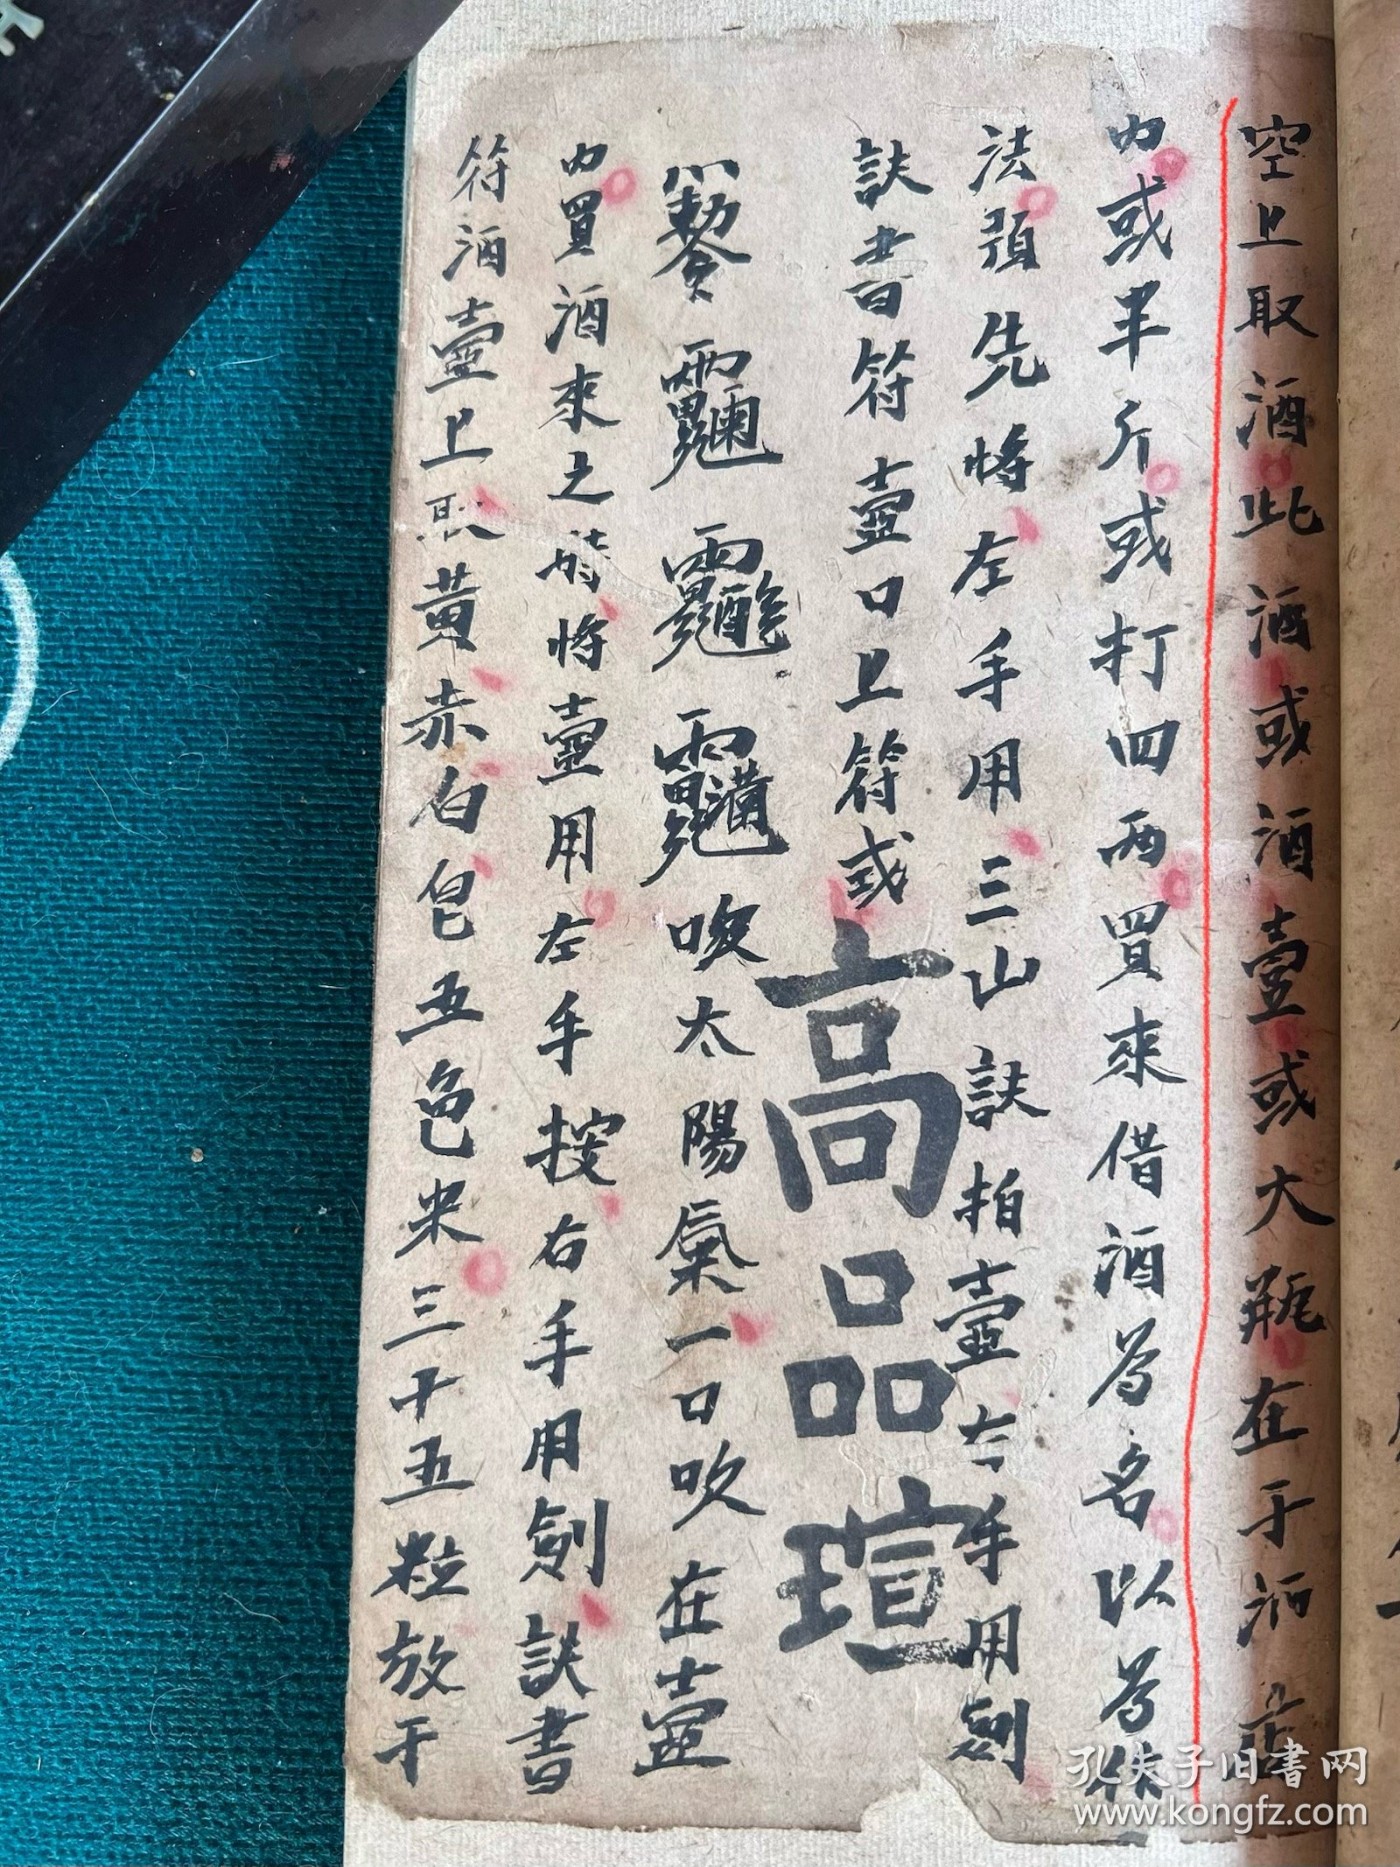 空上取酒此酒或酒壺或大瓶在于酒店
内或半斤或打四两買來借酒為名以為
法須先將左手用三山訣拍壺右手用劍
訣書符壺口上符或
高品瑄
吸太陽氣一口吹在壺
内買酒來之時將壺用左手按右手用劍訣書
符酒壺上取黄赤白皂五色米三十五粒放于
孔夫子旧书网
www.kongfz.com